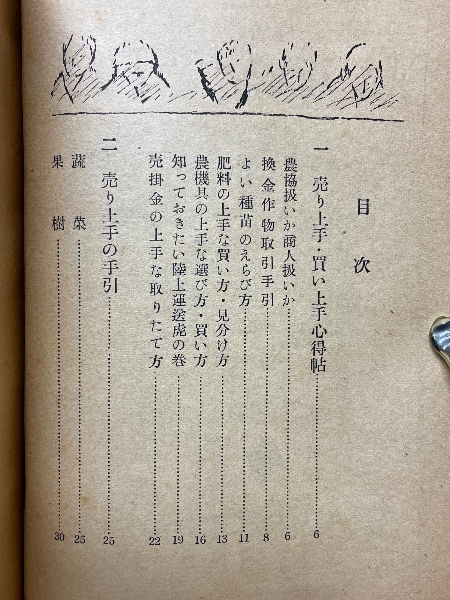 目次
一 売り上手・買い上手心得帖……6
農協扱いか商人扱いか……6
換金作物取引手引……8
よい種苗のえらび方……11
肥料の上手な買い方・見分け方……13
農機具の上手な選び方・買い方……16
知っておきたい陸上運送虎の巻……19
売掛金の上手な取りたて方……22
二 売り上手の手引……25
蔬菜……25
果樹……30